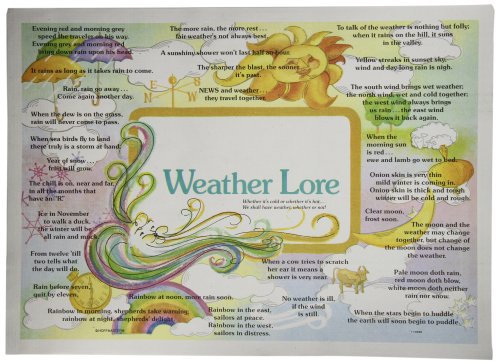 Evening red and morning grey
speed the traveler on his way.
Evening grey and morning red
bring down rain upon his head.
The more rain, the more rest . . .
fair weather's not always best.
To talk of the weather is nothing but folly;
when it rains on the hill, it suns
in the valley.
A sunshiny shower won't last half an hour.
Yellow streaks in sunset sky,
wind and day long rain is nigh.
It rains as long as it takes rain to come.
The sharper the blast, the sooner
it's past.
Rain, rain go away . . .
Come again another day.
N
E
N
W
NEWS and weather . . .
they travel together.
The south wind brings wet weather;
the north wind, wet and cold together;
the west wind always brings
us rain . . . the east wind
blows it back again.
When the dew is on the grass,
rain will never come to pass.
When sea birds fly to land
there truly is a storm at hand.
When the
morning sun
is red . . .
ewe and lamb go wet to bed.
Year of snow . . .
fruit will grow.
The chill is on, near and far,
in all the months that
have an "R."
Weather Lore
Whether it's cold or whether it's hot,
We shall have weather, whether or not!
Onion skin is very thin
mild winter is coming in.
Onion skin is thick and tough
winter will be cold and rough.
Ice in November
to walk a duck,
the winter will be
all rain and muck.
Clear moon,
frost soon.
The moon and the
weather may change
together, but change of
the moon does not change
the weather.
From twelve 'till
two tells what
the day will do.
When a cow tries to scratch
her ear it means a
shower is very near.
Pale moon doth rain,
red moon doth blow,
white moon doth neither
rain nor snow.
Rain before seven,
quit by eleven.
Rainbow at noon, more rain soon.
No weather is ill,
if the wind
is still.
Rainbow in morning, shepherds take warning;
rainbow at night, shepherds' delight.
Rainbow in the east,
sailors at peace.
Rainbow in the west,
sailors in distress.
When the stars begin to huddle
the earth will soon begin to puddle.